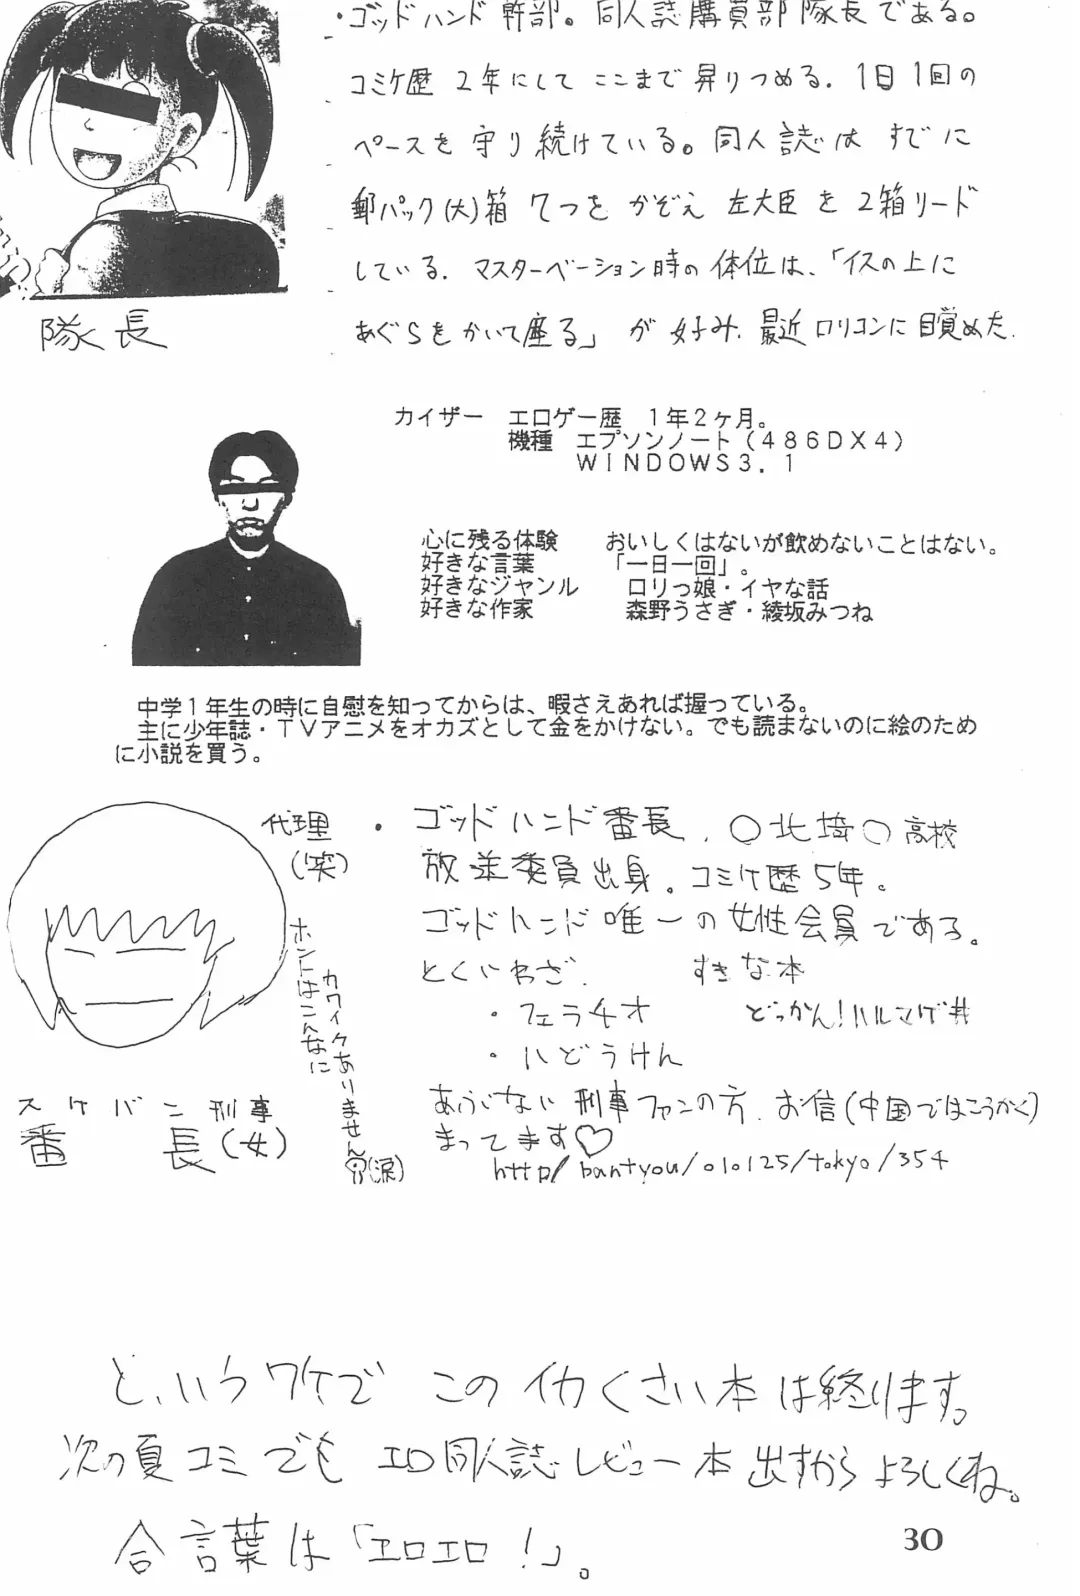 ・ゴッドハンド幹部。同人誌購買部隊長である。
コミケ歴2年にしてここまで昇りつめる。1日1回の
ペースを守り続けている。同人誌はすでに
郵パック(大)箱7つをかぞえ左大臣を2箱リード
している。マスターベーション時の体位は、「イスの上に
あぐらをかいて座る」が好み。最近ロリコンに目覚めた。
隊長
カイザー　エロゲー歴　1年2ヶ月。
機種　エプソンノート(486DX4)
WINDOWS3.1
心に残る体験　おいしくはないが飲めないことはない。
好きな言葉　「一日一回」。
好きなジャンル　ロリっ娘・イヤな話
好きな作家　森野うさぎ・綾坂みつね
中学1年生の時に自慰を知ってからは、暇さえあれば握っている。
主に少年誌・TVアニメをオカズとして金をかけない。でも読まないのに絵のため
に小説を買う。
代理
(笑)
ホントはこんなに
カワイクありません
(涙)
スケバン刑事
番長(女)
・ゴッドハンド番長、○北埼○高校
放送委員出身。コミケ歴5年。
ゴッドハンド唯一の女性会員である。
とくいわざ.　すきな本
・フェラチオ　どっかん!ハルマゲ丼
・ハどうけん
あぶない刑事ファンの方、お信(中国ではこうかく)
まってます♡
http/bantyou/010125/tokyo/354
と、いうワケで このイカくさい本は終ります。
次の夏コミでも エロ同人誌レビュー本出すからよろしくね。
合言葉は「エロエロ!」。
30